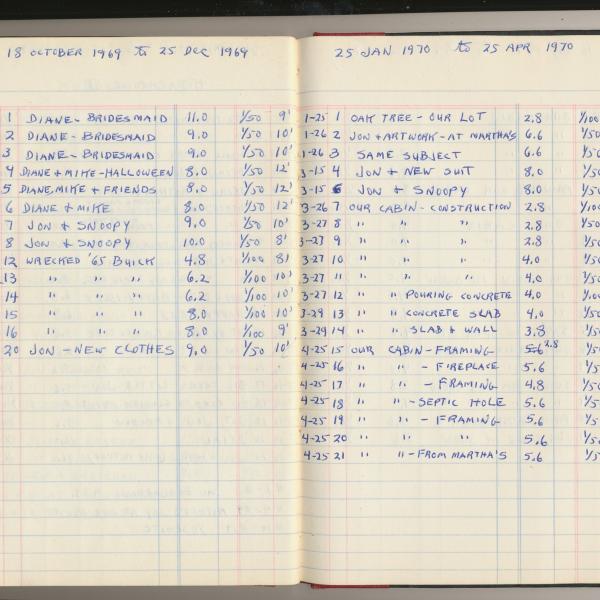 18 OCTOBER 1969 to 25 DEC 1969
1 DIANE - BRIDESMAID 11.0 1/50 9'
2 DIANE - BRIDESMAID 9.0 1/50 10'
3 DIANE - BRIDESMAID 9.0 1/50 10'
4 DIANE + MIKE - HALLOWEEN 8.0 1/50 12'
5 DIANE, MIKE + FRIENDS 8.0 1/50 12'
6 DIANE + MIKE 8.0 1/50 12'
7 JON & SNOOPY 9.0 1/50 10'
8 JON & SNOOPY 10.0 1/50 8'
12 WRECKED '65 BUICK 4.8 1/100 8'
13 " " " 6.2 1/100 10'
14 " " " 6.2 1/100 10'
15 " " " 8.0 1/100 10'
16 " " " 8.0 1/100 9'
20 JON - NEW CLOTHES 9.0 1/50 10'
25 JAN 1970 to 25 APR 1970
1-25 1 OAK TREE - OUR LOT 2.8 1/100
1-26 2 JON + ARTWORK - AT MARTHA'S 6.6 1/50
1-26 3 SAME SUBJECT 6.6 1/50
3-15 4 JON & NEW SUIT 8.0 1/50
3-15 6 JON & SNOOPY 8.0 1/50
3-26 7 OUR CABIN - CONSTRUCTION 2.8 1/100
3-27 8 " " " 2.8 1/50
3-27 9 " " " 2.8 1/50
3-27 10 " " " 4.0 1/50
3-27 11 " " " 4.0 1/50
3-27 12 " " POURING CONCRETE 4.0 1/100
3-29 13 " " CONCRETE SLAB 4.0 1/50
3-29 14 " " SLAB & WALL 3.8 1/50
4-25 15 OUR CABIN - FRAMING 5.6 2.8 1/50
4-25 16 " " - FIREPLACE 5.6 1/50
4-25 17 " " - FRAMING 4.8 1/50
4-25 18 " " - SEPTIC HOLE 5.6 1/50
4-25 19 " " - FRAMING 5.6 1/50
4-25 20 " " " 5.6 1/50
4-25 21 " " - FROM MARTHA'S 5.6 1/5